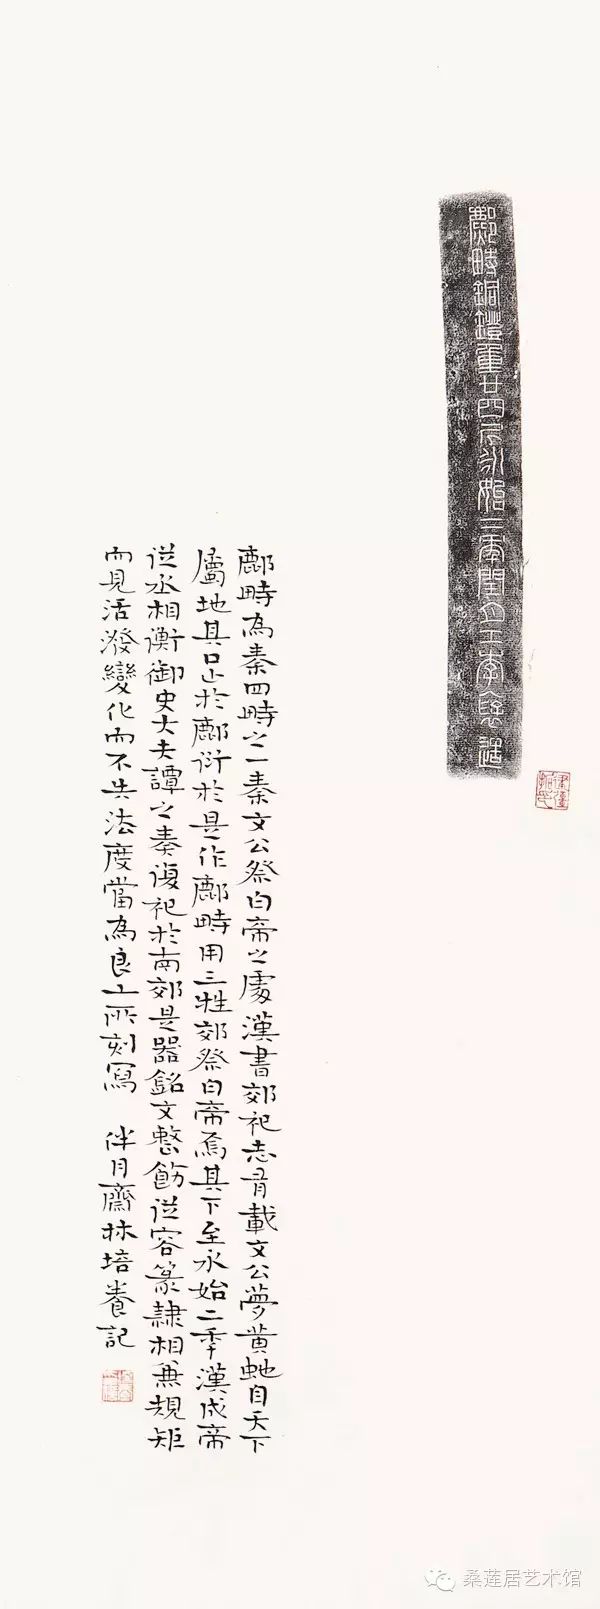 鄜畤銅鐙重廿四斤永始二年閏月工李駿造
鄜畤為秦四畤之一秦文公祭白帝之處漢書郊祀志有載文公夢黃蛇自天下
屬地其口止於鄜衍於是作鄜畤用三牲郊祭白帝焉其下至永始二年漢成帝
從丞相衡御史大夫譚之奏復祀於南郊是器銘文整飭從容篆隸相兼規矩
而見活潑變化而不失法度當為良工所刻寫 伴月齋林培養記
桑莲居艺术馆